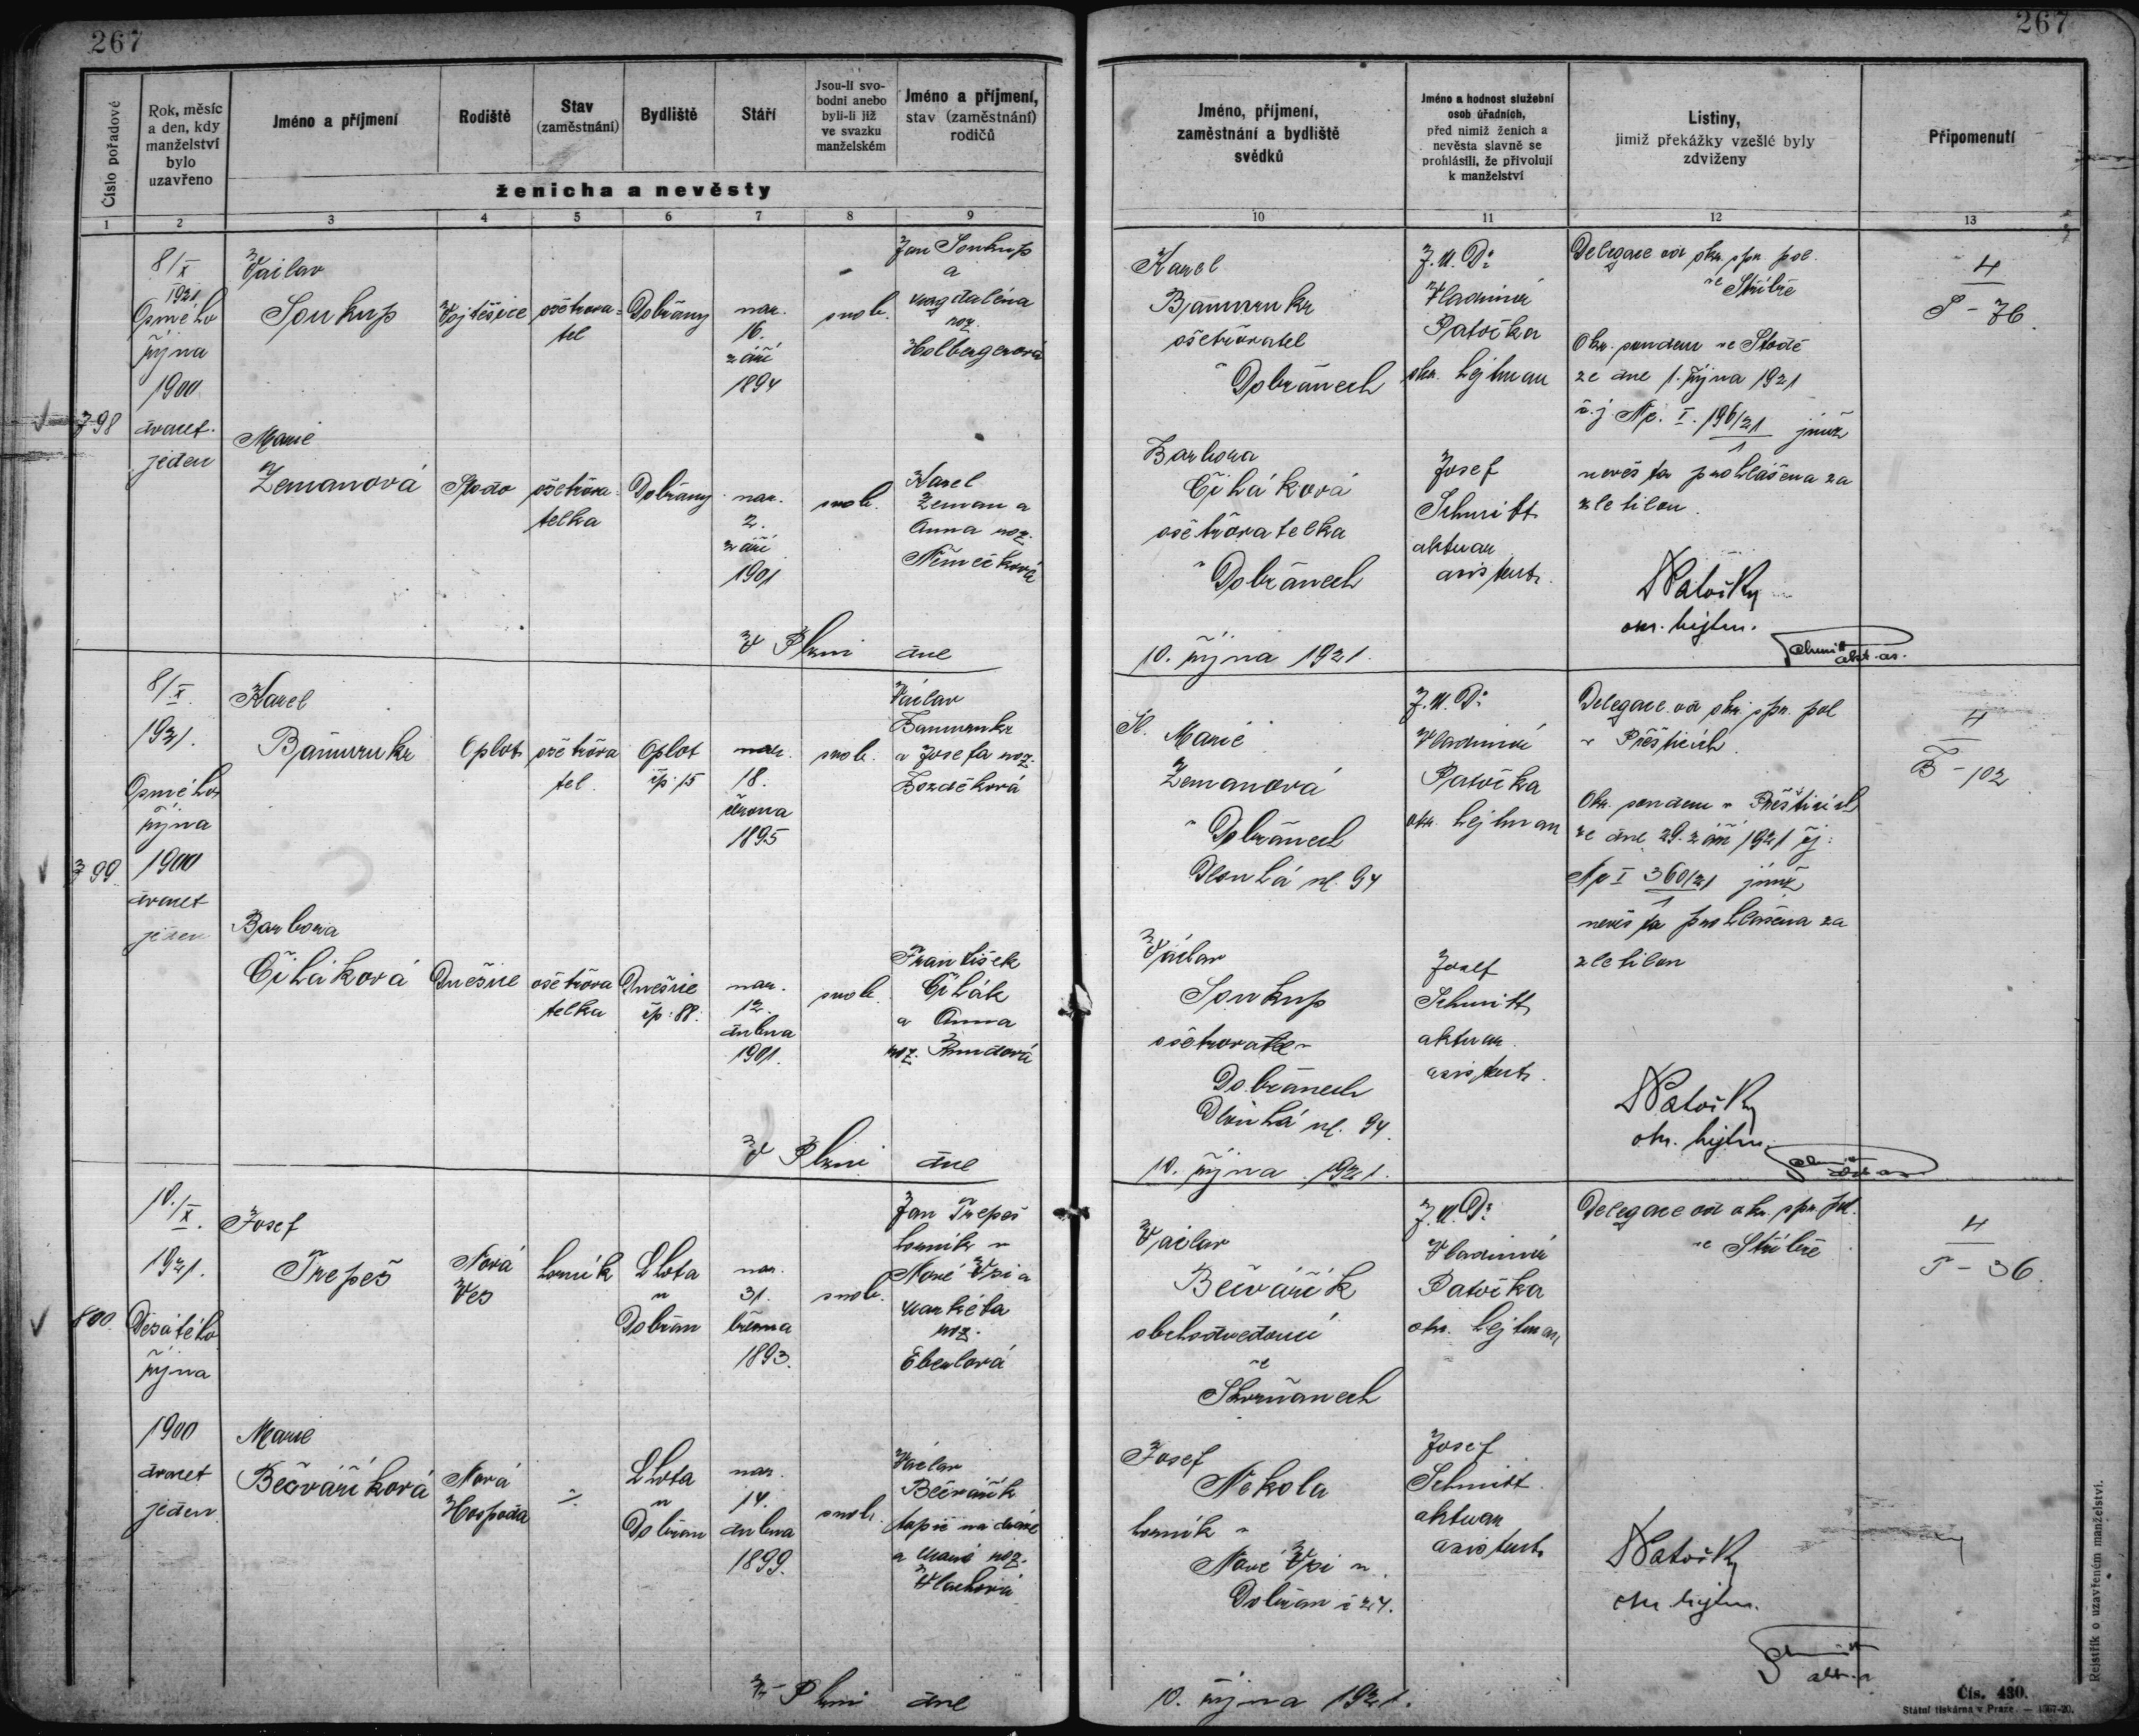 267
267
Číslo pořadové
Rok, měsíc
a den, kdy
manželství
bylo
uzavřeno
Jméno a příjmení
Rodiště
Stav
(zaměstnání)
Bydliště
Stáří
Jsou-li svo-
bodni anebo
byli-li již
ve svazku
manželském
Jméno a příjmení,
stav (zaměstnání)
rodičů
ženicha a nevěsty
1 2 3 4 5 6 7 8 9
Jméno, příjmení,
zaměstnání a bydliště
svědků
Jméno a hodnost služební
osob úřadních,
před nimiž ženich a
nevěsta slavně se
prohlásili, že přivolují
k manželství
Listiny,
jimiž překážky vzešlé byly
zdviženy
Připomenutí
10 11 12 13
798
8/X
1921
Osmého
října
1900
dvacet
jeden
Václav
Soukup
Vojtěšice
ošetřova-
tel
Dobřany
nar.
16.
září
1894
svob.
Jan Soukup
a
Magdaléna
roz.
Holbergerová
Marie
Zemanová
Stodo
ošetřova-
telka
Dobřany
nar.
2.
září
1901
svob.
Karel
Zeman a
Anna roz.
Němečková
V Plzni dne
Karel
Bämmrukr
ošetřovatel
v Dobřanech
Barbora
Čiháková
ošetřovatelka
v Dobřanech
10. října 1921.
J.U.Dr
Vladimír
Patočka
okr. hejtman
Josef
Schmitt
aktuar.
asistent.
Delegace od okr. spr. pol.
ve Stříbře
Okr. soudem ve Stodě
ze dne 1. října 1921
č.j. Nc. I. 196/21 jímž
1
nevěsta prohlášena za
zletilou.
Dr Patočka
okr. hejtm.
Schmitt
akt. as.
4
S - 76.
799
8/X.
1921.
Osmého
října
1900
dvacet
jeden
Karel
Bämmrukr
Oplot
ošetřova
tel.
Oplot
čp. 15
nar.
18.
února
1895
svob.
Václav
Bämmrukr
a Josefa roz.
Bozděková
Barbora
Čiháková
Dnešice
ošetřova
telka
Dnešice
čp. 88.
nar.
12.
dubna
1901.
svob.
František
Čihák
a Anna
V Plzni dne
Sl. Marie
Zemanová
v Dobřanech
Dlouhá ul. 94
Václav
Soukup
ošetřovatel v
Dobřanech
Dlouhá ul. 94.
10. října 1921.
J.U.Dr
Vladimír
Patočka
okr. hejtman
Josef
Schmitt
aktuar.
asistent.
Delegace od okr. spr. pol
v Přešticích.
Okr. soudem v Přešticích
ze dne 29. září 1921 čj:
Nc I 360/21 jímž
1
nevěsta prohlášena za
zletilou
Dr Patočka
okr. hejtm.
Schmitt
akt as
4
B - 102
800.
10./X.
1921.
Desátého
října
1900
dvacet
jeden.
Josef
Trepeš
Nová
Ves
horník
Lhota
u
Dobřan
nar.
31.
března
1893.
svob.
Jan Trepeš
horník v
Nové Vsi a
Markéta
roz.
Eberlová
Marie
Bečváříková
Nová
Hospoda
Lhota
u
Dobřan
nar.
14.
dubna
1899.
svob.
Václav
Bečvářík
topič na dráze
a Marie roz.
Vlachová
V Plzni dne
Václav
Bečvářík
obchodvedoucí
ve
Skvrňanech
Josef
Nekola
horník v
Nové Vsi u
Dobřan č 24.
10. října 1921.
J.U.Dr
Vladimír
Patočka
okr. hejtman
Josef
Schmitt
aktuar
asistent.
Delegace od okr. spr. pol.
ve Stříbře
Dr Patočka
okr. hejtm.
Schmitt
akt. a
4
T - 36.
Rejstřík o uzavřeném manželství.
Čís. 430.
Státní tiskárna v Praze. — 1567-20.